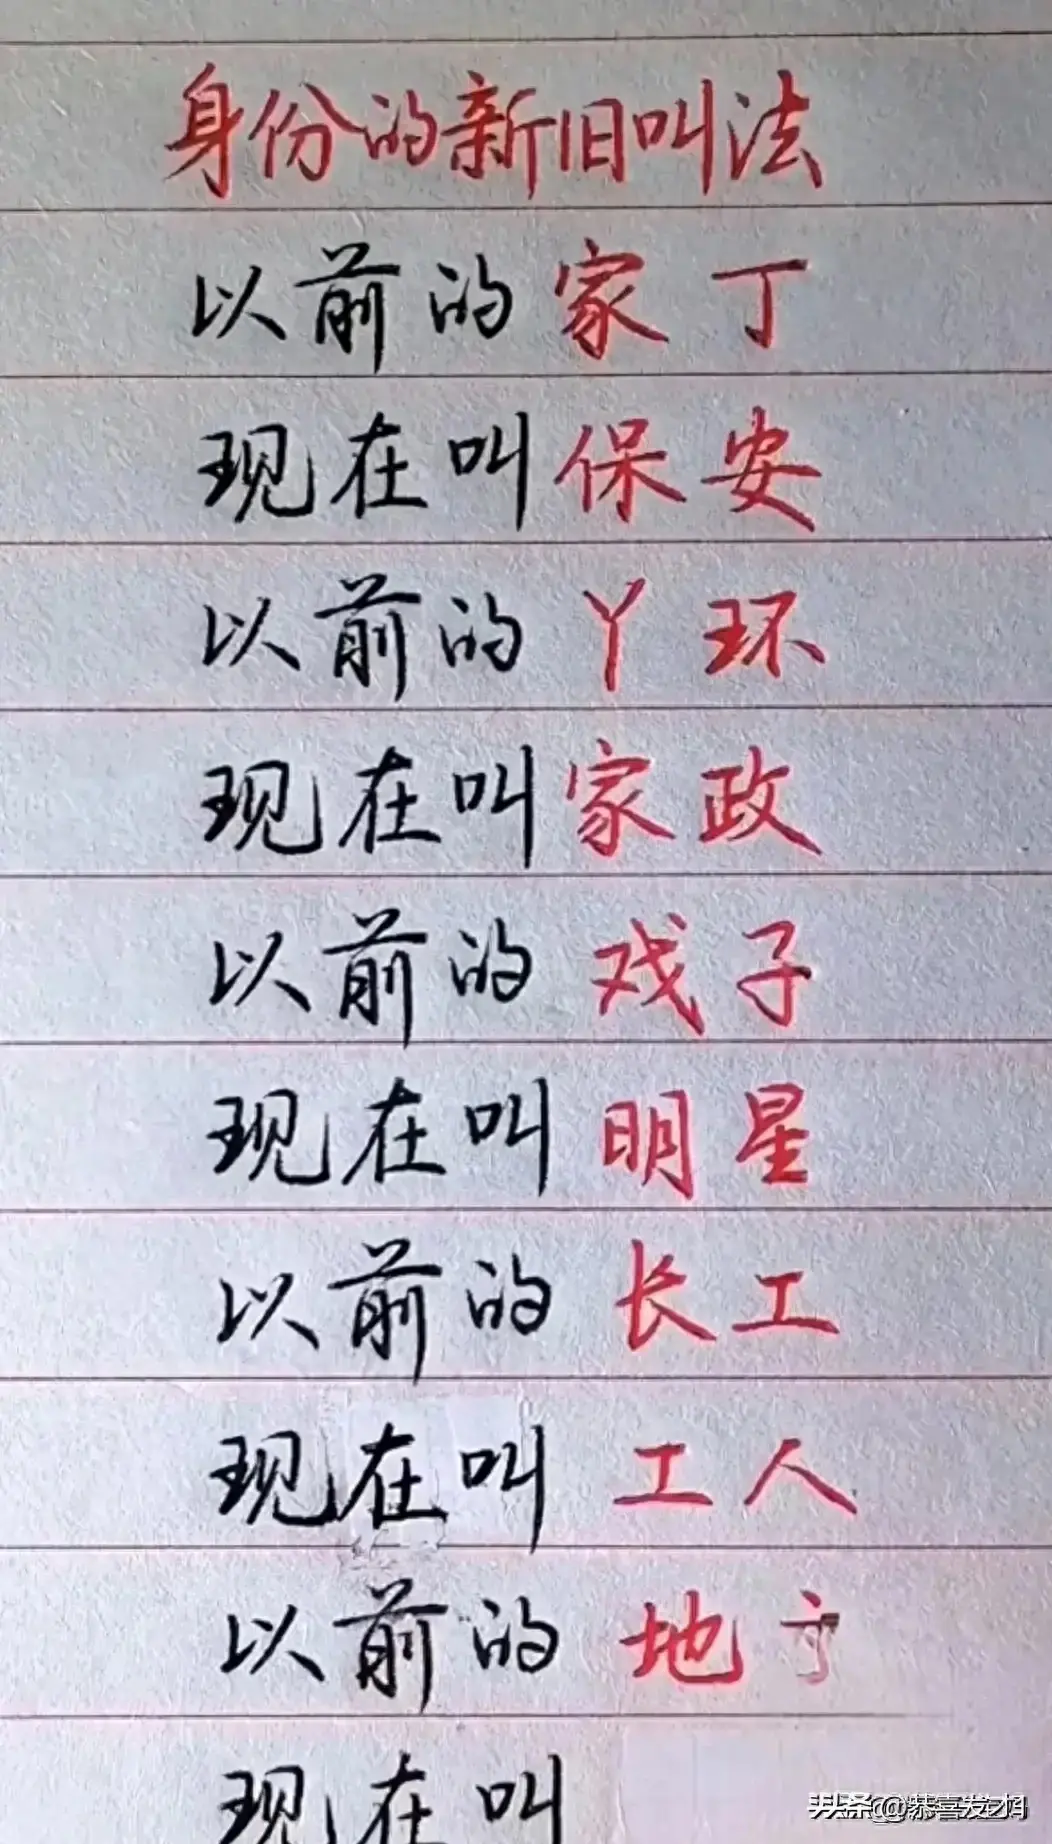 身份的新旧叫法
以前的家丁
现在叫保安
以前的丫环
现在叫家政
以前的戏子
现在叫明星
以前的长工
现在叫工人
以前的地
现在叫
头条@恭喜发